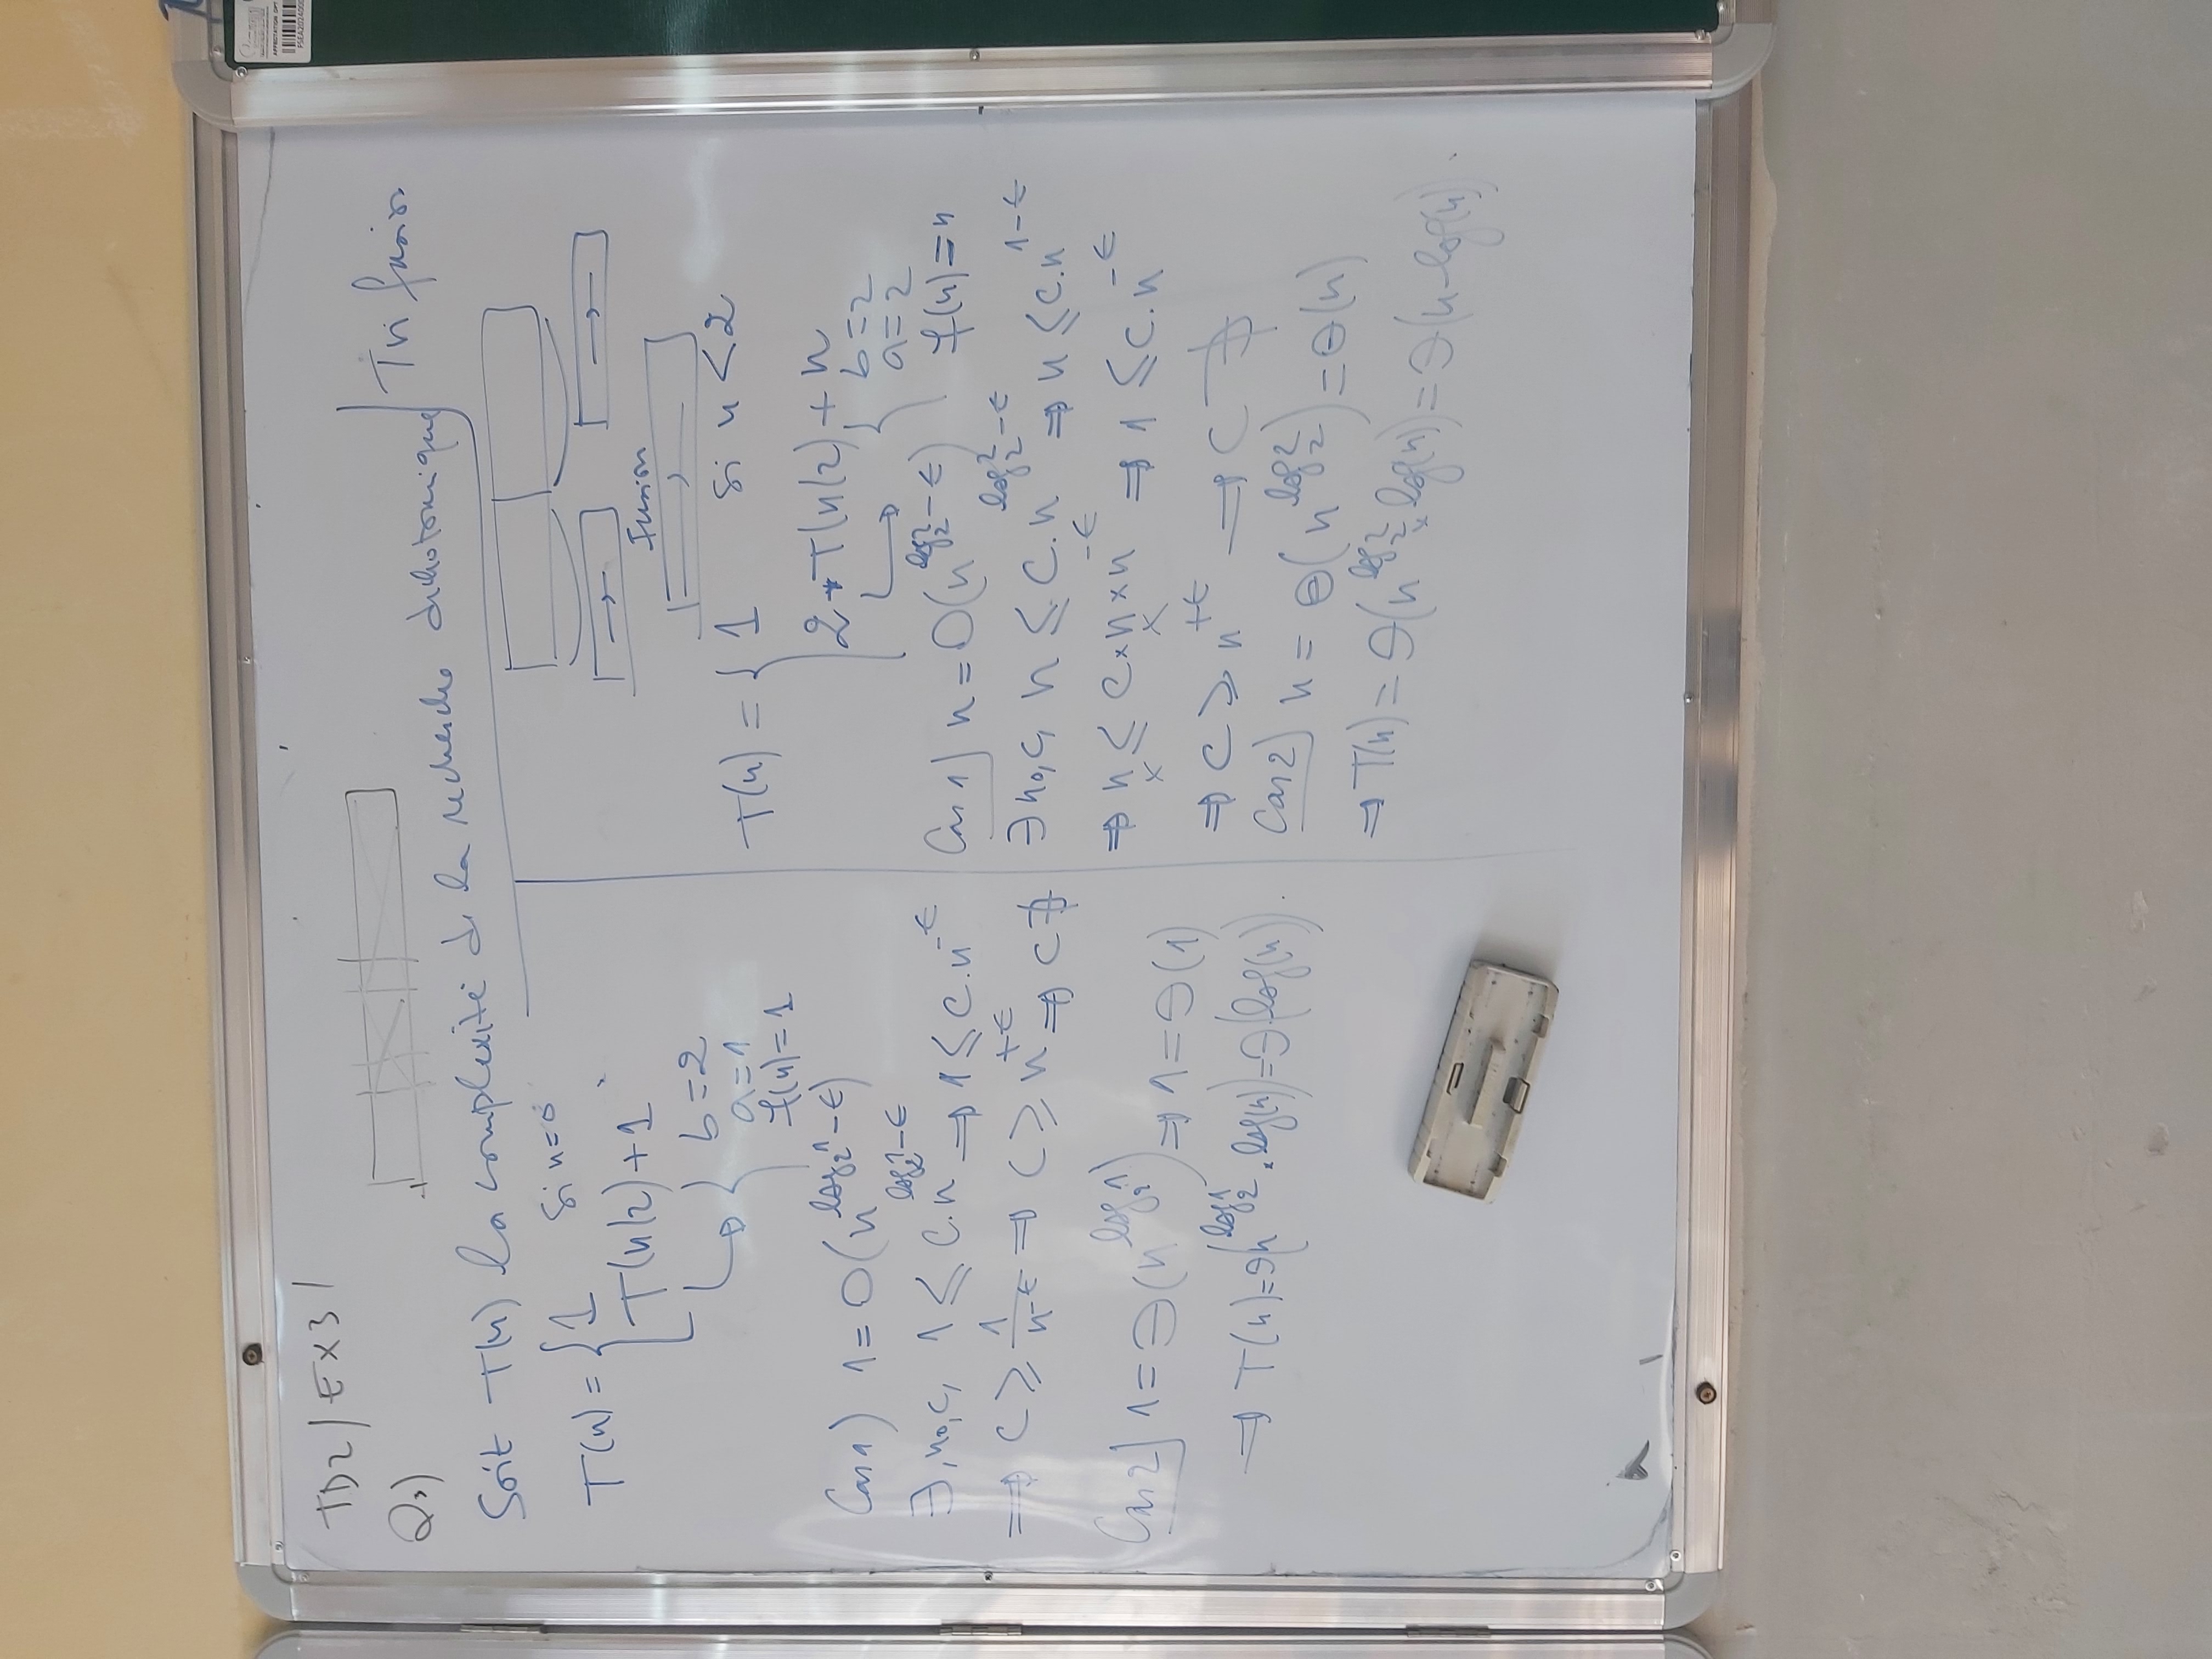 TD2/EX3/
Q3)
Soit T(n) la complexité de la recherche dichotomique
T(n) = { 1 si n=0
T(n/2)+1
b=2
a=1
f(n)=1
Cas 1) 1=O(n^{log_2 1-ϵ})
∃, n₀, c, 1 ≤ c.n^{log_2 1-ϵ} ⇒ 1 ≤ c.n^{-ϵ}
⇒ c ≥ 1/n^{-ϵ} ⇒ c ≥ n^{+ϵ} ⇒ c ∄
Cas 2] 1=Θ(n^{log_2 1}) ⇒ 1=Θ(1)
⇒ T(n)=Θ(n^{log_2 1}.log(n))=Θ(log(n)).
Tri fusion
Fusion
T(n) = { 1 si n<2
2*T(n/2)+n
b=2
a=2
f(n)=n
Cas 1] n=O(n^{log_2 2-ϵ})
∃ n₀, c, n ≤ c.n^{log_2 2-ϵ} ⇒ n ≤ c.n^{1-ϵ}
⇒ n ≤ c×n×n^{-ϵ} ⇒ 1 ≤ c.n^{-ϵ}
⇒ c ≥ n^{+ϵ} → c ∄
Cas 2] n = Θ(n^{log_2 2})=Θ(n)
⇒ T(n) = Θ(n^{log_2 2}×log(n))=Θ(n-log(n)).
AFFECTATION DPT